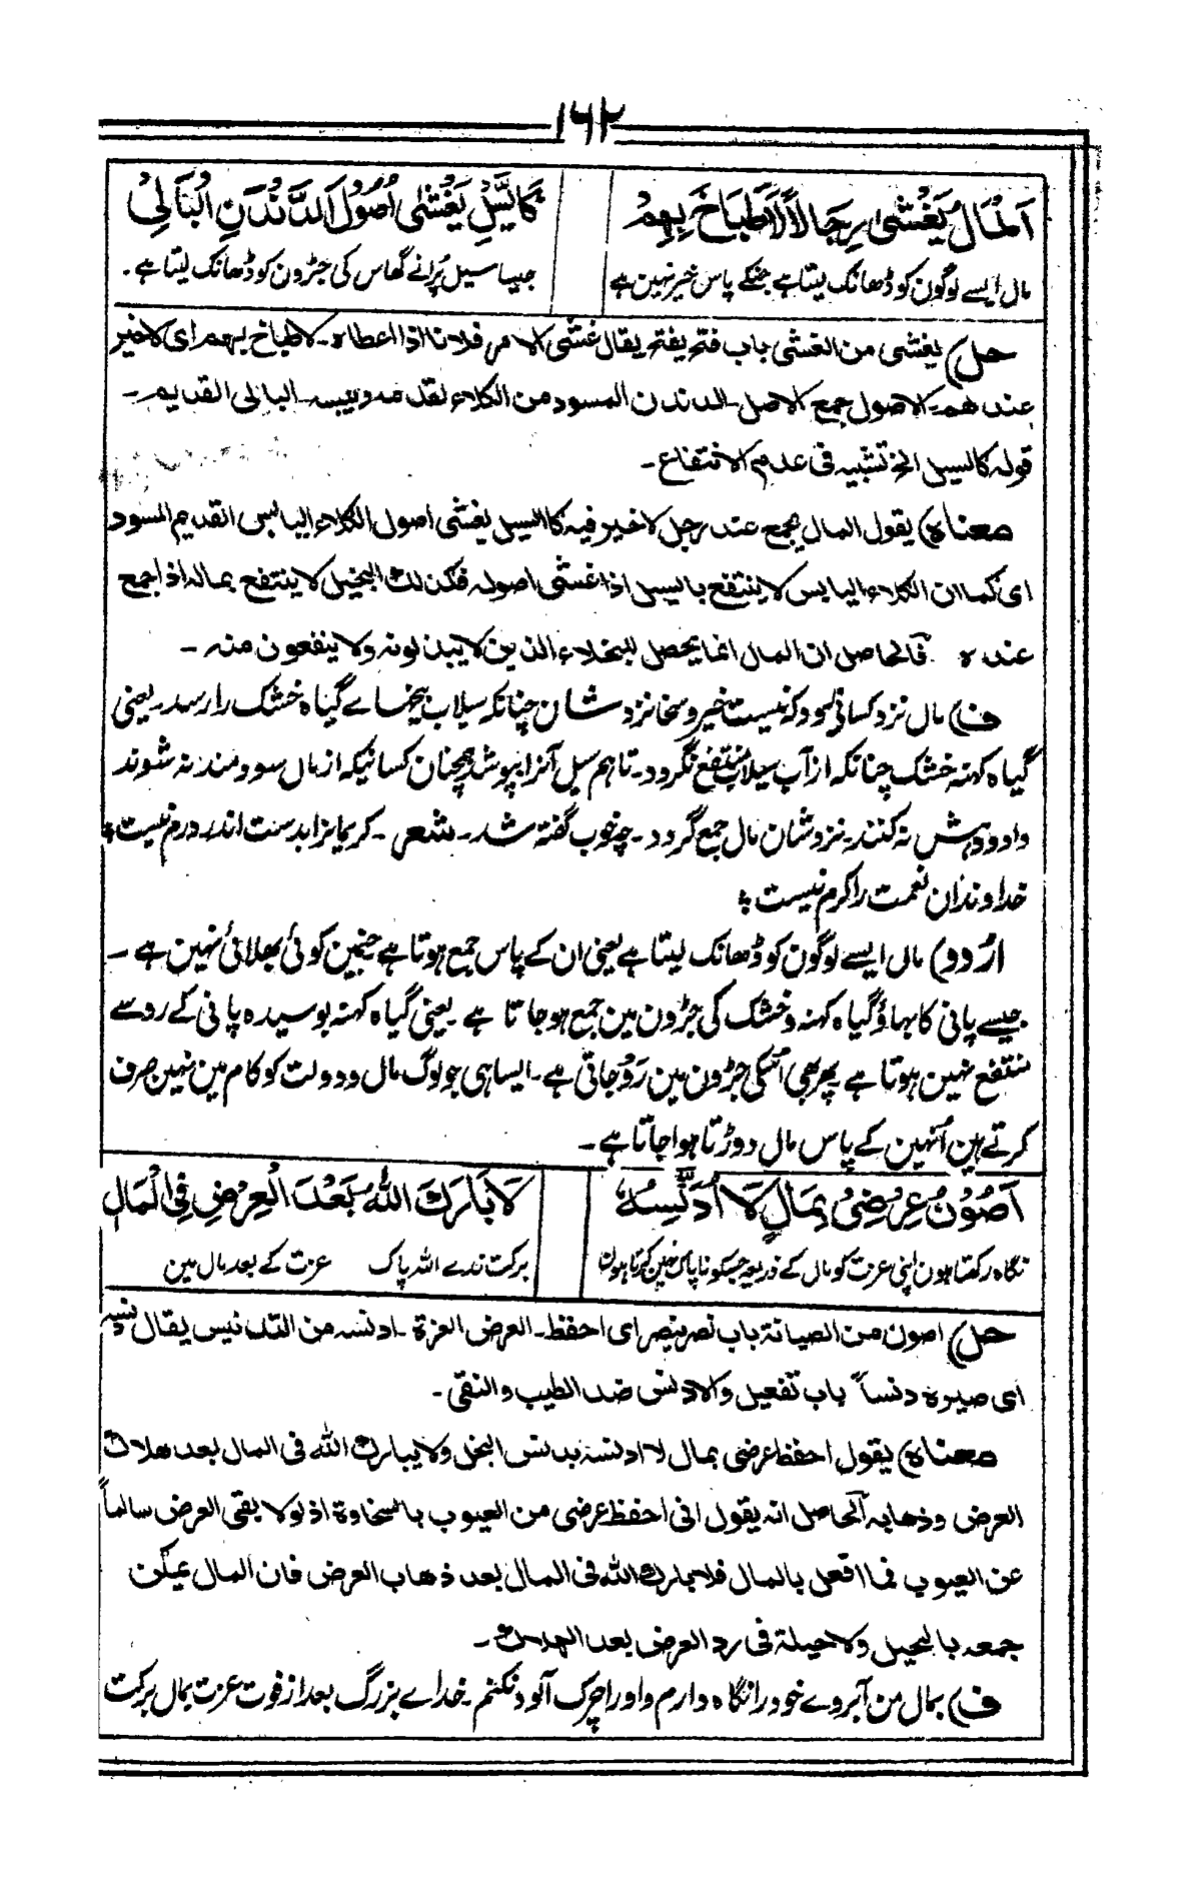 ۱۶۲
اَلْمَالُ يَغْشٰى رِجَالًا لَا طَبَاخَ بِهِمْ كَالسَّيْلِ يَغْشٰى اُصُوْلَ الدَّنْدَنِ الْبَالِيْ
مال ایسے لوگون کو ڈھانک لیتا ہے جنکے پاس خیر نہین ہے جیسا سیل پُرانے گھاس کی جڑون کو ڈھانک لیتا ہے۔
حل) يغشى من الغشى باب فتح يفتح يقال غشى الامر فلانا اذا اعطاه۔ لاطباخ بهم اى لا خير
عندهم۔ الاصول جمع الاصل۔ الدندن المسود من الكلاء لقدمه ويبسه۔ البالى القديم۔
قوله كالسيل الخ تشبيه فى عدم الانتفاع۔
معناه) يقول المال يجمع عند رجل لا خير فيه كالسيل يغشى اصول الكلاء اليابس القديم المسود
اى كما ان الكلاء اليابس لا ينتفع بالسيل اذا غشى اصوله فكذلك البخيل لا ينتفع بماله اذا جمع
عنده فالحاصل ان المال انما يحصل للبخلاء الذين لا يبذلونه ولا ينفعون منه۔
ف) مال نزد کسانی بود که نیست خیر و سخا نزد شان چنانکه سیلاب بیخہاے گیاه خشک را رسد یعنی
گیاه کہنہ خشک چنانکه از آب سیلاب منتفع نگردد۔ تا ہم سیل آنرا بپوشد ہمچنان کسانیکه از مال سودمند نہ شوند
داد و دہش نہ کنند۔ نزد شان مال جمع گردد۔ چہ خوب گفتہ شد۔ شعر۔ کریمانرا بدست اندر درم نیست؛
خداوندان نعمت را کرم نیست؛
اردو) مال ایسے لوگون کو ڈھانک لیتا ہے یعنی ان کے پاس جمع ہوتا ہے جنمین کوئی بھلائی نہین ہے۔
جیسے پانی کا بہاؤ گیاه کہنہ و خشک کی جڑون مین جمع ہو جاتا ہے یعنی گیاه کہنہ بوسیده پانی کے رو سے
منتفع نہین ہوتا ہے پھر بھی اُسکی جڑون مین رَو جاتی ہے۔ ایسا ہی جو لوگ مال و دولت کو کام مین نہین صرف
کرتے ہین اُنہین کے پاس مال دوڑتا ہوا جاتا ہے۔
اَصُوْنُ عِرْضِیْ بِمَالٍ لَا اُدَنِّسُهٗ لَا بَارَكَ اللّٰهُ بَعْدَ الْعِرْضِ فِی الْمَالِ
نگاه رکھتا ہون اپنی عزت کو مال کے ذریعہ جسکو ناپاک نہین کرتا ہون برکت ندے اللہ پاک عزت کے بعد مال مین
حل) اصون من الصيانة باب نصر ينصر اى احفظ۔ العرض العزة۔ ادنسه من التدنيس يقال دنسه
اى صيره دنساً باب تفعيل والادنس ضد الطيب والنقى۔
معناه) يقول احفظ عرضى بمال لا ادنسه بدنس البخل ولا يبارك الله فى المال بعد هلاك
العرض وذهابه فالحاصل انه يقول انى احفظ عرضى من العيوب بالسخاوة اذ لو لا يبقى العرض سالماً
عن العيوب فما افعل بالمال فلا بارك الله فى المال بعد ذهاب العرض فان المال يمكن
جمعه بالحيل ولا حيلة فى رد العرض بعد الهلاك۔
ف) بمال من آبروے خود را نگاه دارم و اورا چرک آلود نکنم۔ خداے بزرگ بعد از فوت عزت بمال برکت